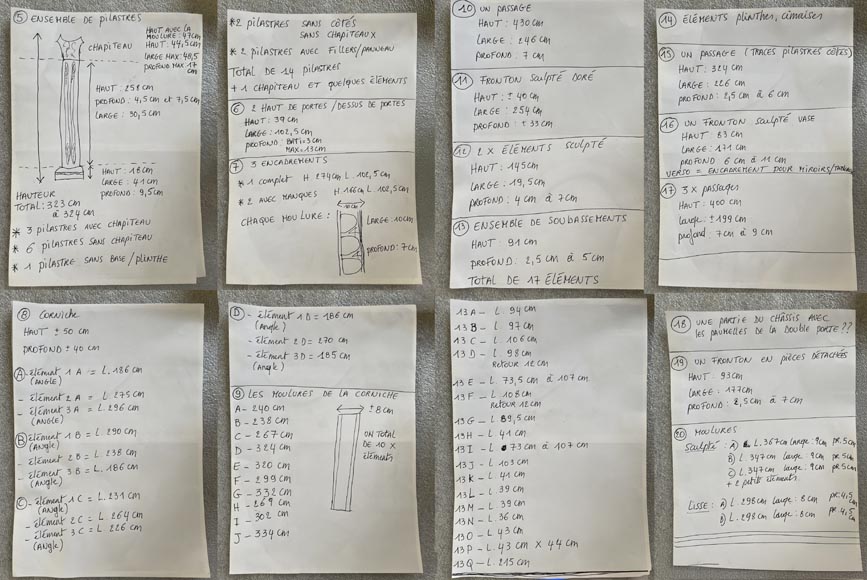 ⑤ ENSEMBLE DE PILASTRES
HAUT AVEC LA
MOULURE: 47cm
HAUT: 44,5cm
LARGE MAX: 48,5
PROFOND MAX 17
cm
CHAPITEAU
HAUT: 258cm
PROFOND: 4,5cm et 7,5cm
LARGE: 30,5cm
HAUT: 18cm
LARGE: 41cm
PROFOND: 9,5cm
HAUTEUR
TOTAL: 323cm
à 324cm
* 3 PILASTRES AVEC CHAPITEAU
* 6 PILASTRES SANS CHAPITEAU
* 1 PILASTRE SANS BASE/PLINTHE
*2 PILASTRES SANS CÔTÉS
SANS CHAPITEAUX
*2 PILASTRES AVEC FILLERS/PANNEAU
TOTAL DE 14 PILASTRES
+ 1 CHAPITEAU ET QUELQUES ÉLÉMENTS
⑥ 2 HAUT DE PORTES/DESSUS DE PORTES
HAUT: 39cm
LARGE: 102,5cm
PROFOND: BÂTI=3cm
MAX=13cm
⑦ 3 ENCADREMENTS
* 1 complet H 274cm L. 102,5cm
* 2 AVEC MANQUES H.166cm L. 102,5cm
CHAQUE MOULURE:
10cm
LARGE: 10cm
PROFOND: 7cm
⑩ UN PASSAGE
HAUT: 430cm
LARGE: 246cm
PROFOND: 7cm
⑪ FRONTON SCULPTÉ DORÉ
HAUT: ± 40cm
LARGE: 254cm
PROFOND: ± 33cm
⑫ 2 X ÉLÉMENTS SCULPTÉ
HAUT: 145cm
LARGE: 19,5cm
PROFOND: 4cm à 7cm
⑬ ENSEMBLE DE SOUBASSEMENTS
HAUT: 91cm
PROFOND: 2,5cm à 5cm
TOTAL DE 17 ÉLÉMENTS
⑭ ÉLÉMENTS plinthes, cimaises
⑮ UN PASSAGE (TRACES PILASTRES CÔTÉS)
HAUT: 324
LARGE: 226
PROFOND: 2,5cm à 6cm
⑯ UN FRONTON SCULPTÉ VASE
HAUT: 83cm
LARGE: 171cm
PROFOND 6cm à 11cm
VERSO = ENCADREMENT POUR MIROIRS/
⑰ 3x passages
HAUT: 400cm
large: ±199cm
profond: 7cm à 9cm
⑧ Corniche
HAUT ± 50 cm
PROFOND ± 40 cm
Ⓐ- élément 1A = L.186cm
(ANGLE)
- élément 2A = L.275cm
- élément 3A = L.296cm
(ANGLE)
Ⓑ élément 1B = L.290cm
(Angle)
- élément 2B = L.238cm
- élément 3B = L.186cm
(Angle)
Ⓒ- élément 1C = L.231cm
(Angle)
- élément 2C = L.264cm
- élément 3C = L.226cm
(Angle)
Ⓓ - élément 1D = 186cm
(Angle)
- élément 2D = 270cm
- élément 3D = 185cm
(Angle)
⑨ LES MOULURES DE LA CORNICHE
A- 240cm
B- 238cm
C- 267cm
D- 324cm
E- 320cm
F- 299cm
G- 332cm
H- 269cm
I- 302cm
J- 334cm
±8cm
UN TOTAL
DE 10 X
éléments
13A- L. 94cm
13B- L. 97cm
13C- L. 106cm
13D- L. 98cm
RETOUR 12cm
13E- L. 73,5cm à 107cm
13F- L. 108cm
RETOUR 12cm
13G- L. 89,5cm
13H- L. 41cm
13I- L. 73cm à 107cm
13J- L. 103cm
13K- L. 41cm
13L- L. 39cm
13M- L. 39cm
13N- L. 36cm
13O- L. 43cm
13P- L. 43cm X 44cm
13Q- L. 215cm
⑱ UNE PARTIE DU CHÂSSIS AVEC
LES PAUMELLES DE LA DOUBLE PORTE??
⑲ UN FRONTON EN PIÈCES DÉTACHÉES
HAUT: 93cm
LARGE: 177cm
PROFOND: 2,5cm à 7cm
⑳ MOULURES
Sculpté: A) L.367cm large: 9cm pr.5cm
B) L.347cm large: 9cm pr 5cm
C) L.347cm large: 9cm pr 5cm
+ 2 petits éléments
Lisse: A) L.298cm large: 8cm pr.4,5cm
B) L.298cm large: 8cm pr.4,5cm